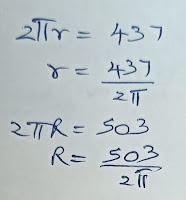 2πr = 437
r = 437/2π
2πR = 503
R = 503/2π